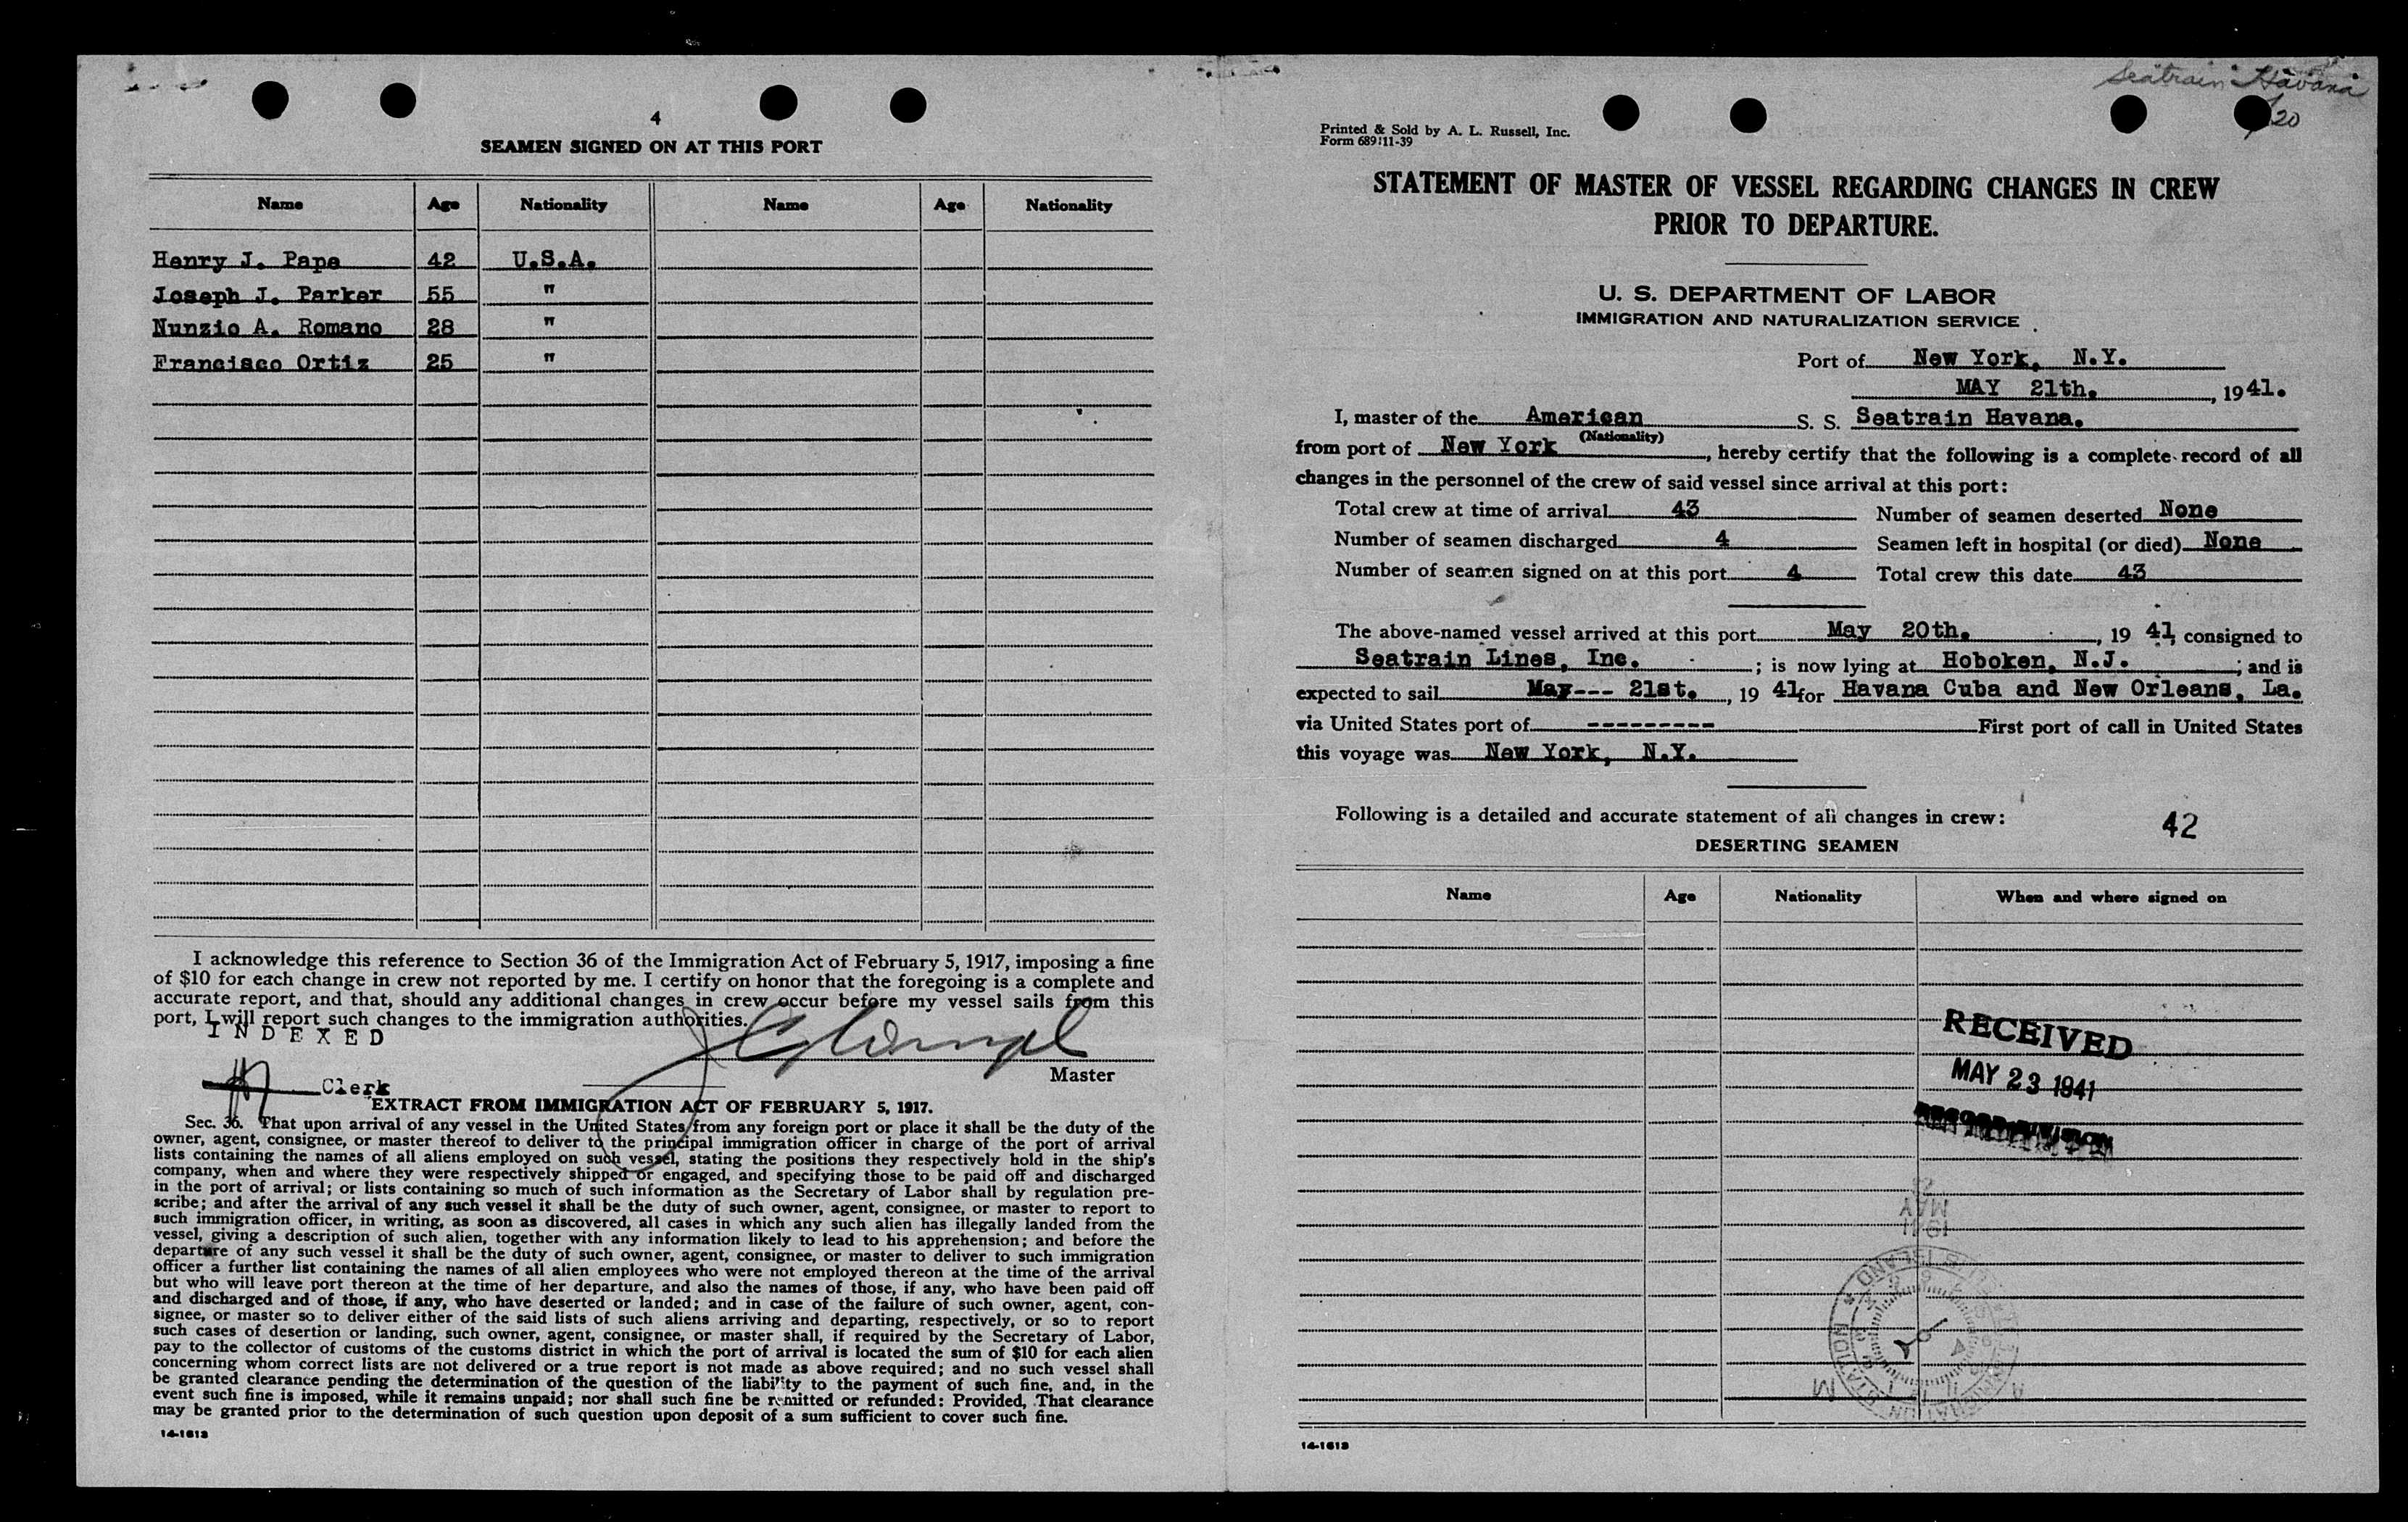 4
SEAMEN SIGNED ON AT THIS PORT
Name Age Nationality Name Age Nationality
Henry J. Pape 42 U.S.A.
Joseph J. Parker 55 "
Nunzio A. Romano 28 "
Francisco Ortiz 25 "
I acknowledge this reference to Section 36 of the Immigration Act of February 5, 1917, imposing a fine
of $10 for each change in crew not reported by me. I certify on honor that the foregoing is a complete and
accurate report, and that, should any additional changes in crew occur before my vessel sails from this
port, I will report such changes to the immigration authorities.
INDEXED
Master
Clerk
EXTRACT FROM IMMIGRATION ACT OF FEBRUARY 5, 1917.
Sec. 36. That upon arrival of any vessel in the United States from any foreign port or place it shall be the duty of the
owner, agent, consignee, or master thereof to deliver to the principal immigration officer in charge of the port of arrival
lists containing the names of all aliens employed on such vessel, stating the positions they respectively hold in the ship's
company, when and where they were respectively shipped or engaged, and specifying those to be paid off and discharged
in the port of arrival; or lists containing so much of such information as the Secretary of Labor shall by regulation pre-
scribe; and after the arrival of any such vessel it shall be the duty of such owner, agent, consignee, or master to report to
such immigration officer, in writing, as soon as discovered, all cases in which any such alien has illegally landed from the
vessel, giving a description of such alien, together with any information likely to lead to his apprehension; and before the
departure of any such vessel it shall be the duty of such owner, agent, consignee, or master to deliver to such immigration
officer a further list containing the names of all alien employees who were not employed thereon at the time of the arrival
but who will leave port thereon at the time of her departure, and also the names of those, if any, who have been paid off
and discharged and of those, if any, who have deserted or landed; and in case of the failure of such owner, agent, con-
signee, or master so to deliver either of the said lists of such aliens arriving and departing, respectively, or so to report
such cases of desertion or landing, such owner, agent, consignee, or master shall, if required by the Secretary of Labor,
pay to the collector of customs of the customs district in which the port of arrival is located the sum of $10 for each alien
concerning whom correct lists are not delivered or a true report is not made as above required; and no such vessel shall
be granted clearance pending the determination of the question of the liability to the payment of such fine, and, in the
event such fine is imposed, while it remains unpaid; nor shall such fine be remitted or refunded: Provided, That clearance
may be granted prior to the determination of such question upon deposit of a sum sufficient to cover such fine.
14-1613
Seatrain Havana
5/20
Printed & Sold by A. L. Russell, Inc.
Form 689:11-39
STATEMENT OF MASTER OF VESSEL REGARDING CHANGES IN CREW
PRIOR TO DEPARTURE.
U. S. DEPARTMENT OF LABOR
IMMIGRATION AND NATURALIZATION SERVICE
Port of New York, N.Y.
MAY 21th. , 1941.
I, master of the American S. S. Seatrain Havana.
(Nationality)
from port of New York , hereby certify that the following is a complete record of all
changes in the personnel of the crew of said vessel since arrival at this port:
Total crew at time of arrival 43 Number of seamen deserted None
Number of seamen discharged 4 Seamen left in hospital (or died) None
Number of seamen signed on at this port 4 Total crew this date 43
The above-named vessel arrived at this port May 20th. , 19 41, consigned to
Seatrain Lines, Inc. ; is now lying at Hoboken, N.J. ; and is
expected to sail May--- 21st. , 19 41 for Havana Cuba and New Orleans, La.
via United States port of --------- First port of call in United States
this voyage was New York, N.Y.
Following is a detailed and accurate statement of all changes in crew:
42
DESERTING SEAMEN
Name Age Nationality When and where signed on
RECEIVED
MAY 23 1941
RECORD DIVISION
MAY
1941
14-1613